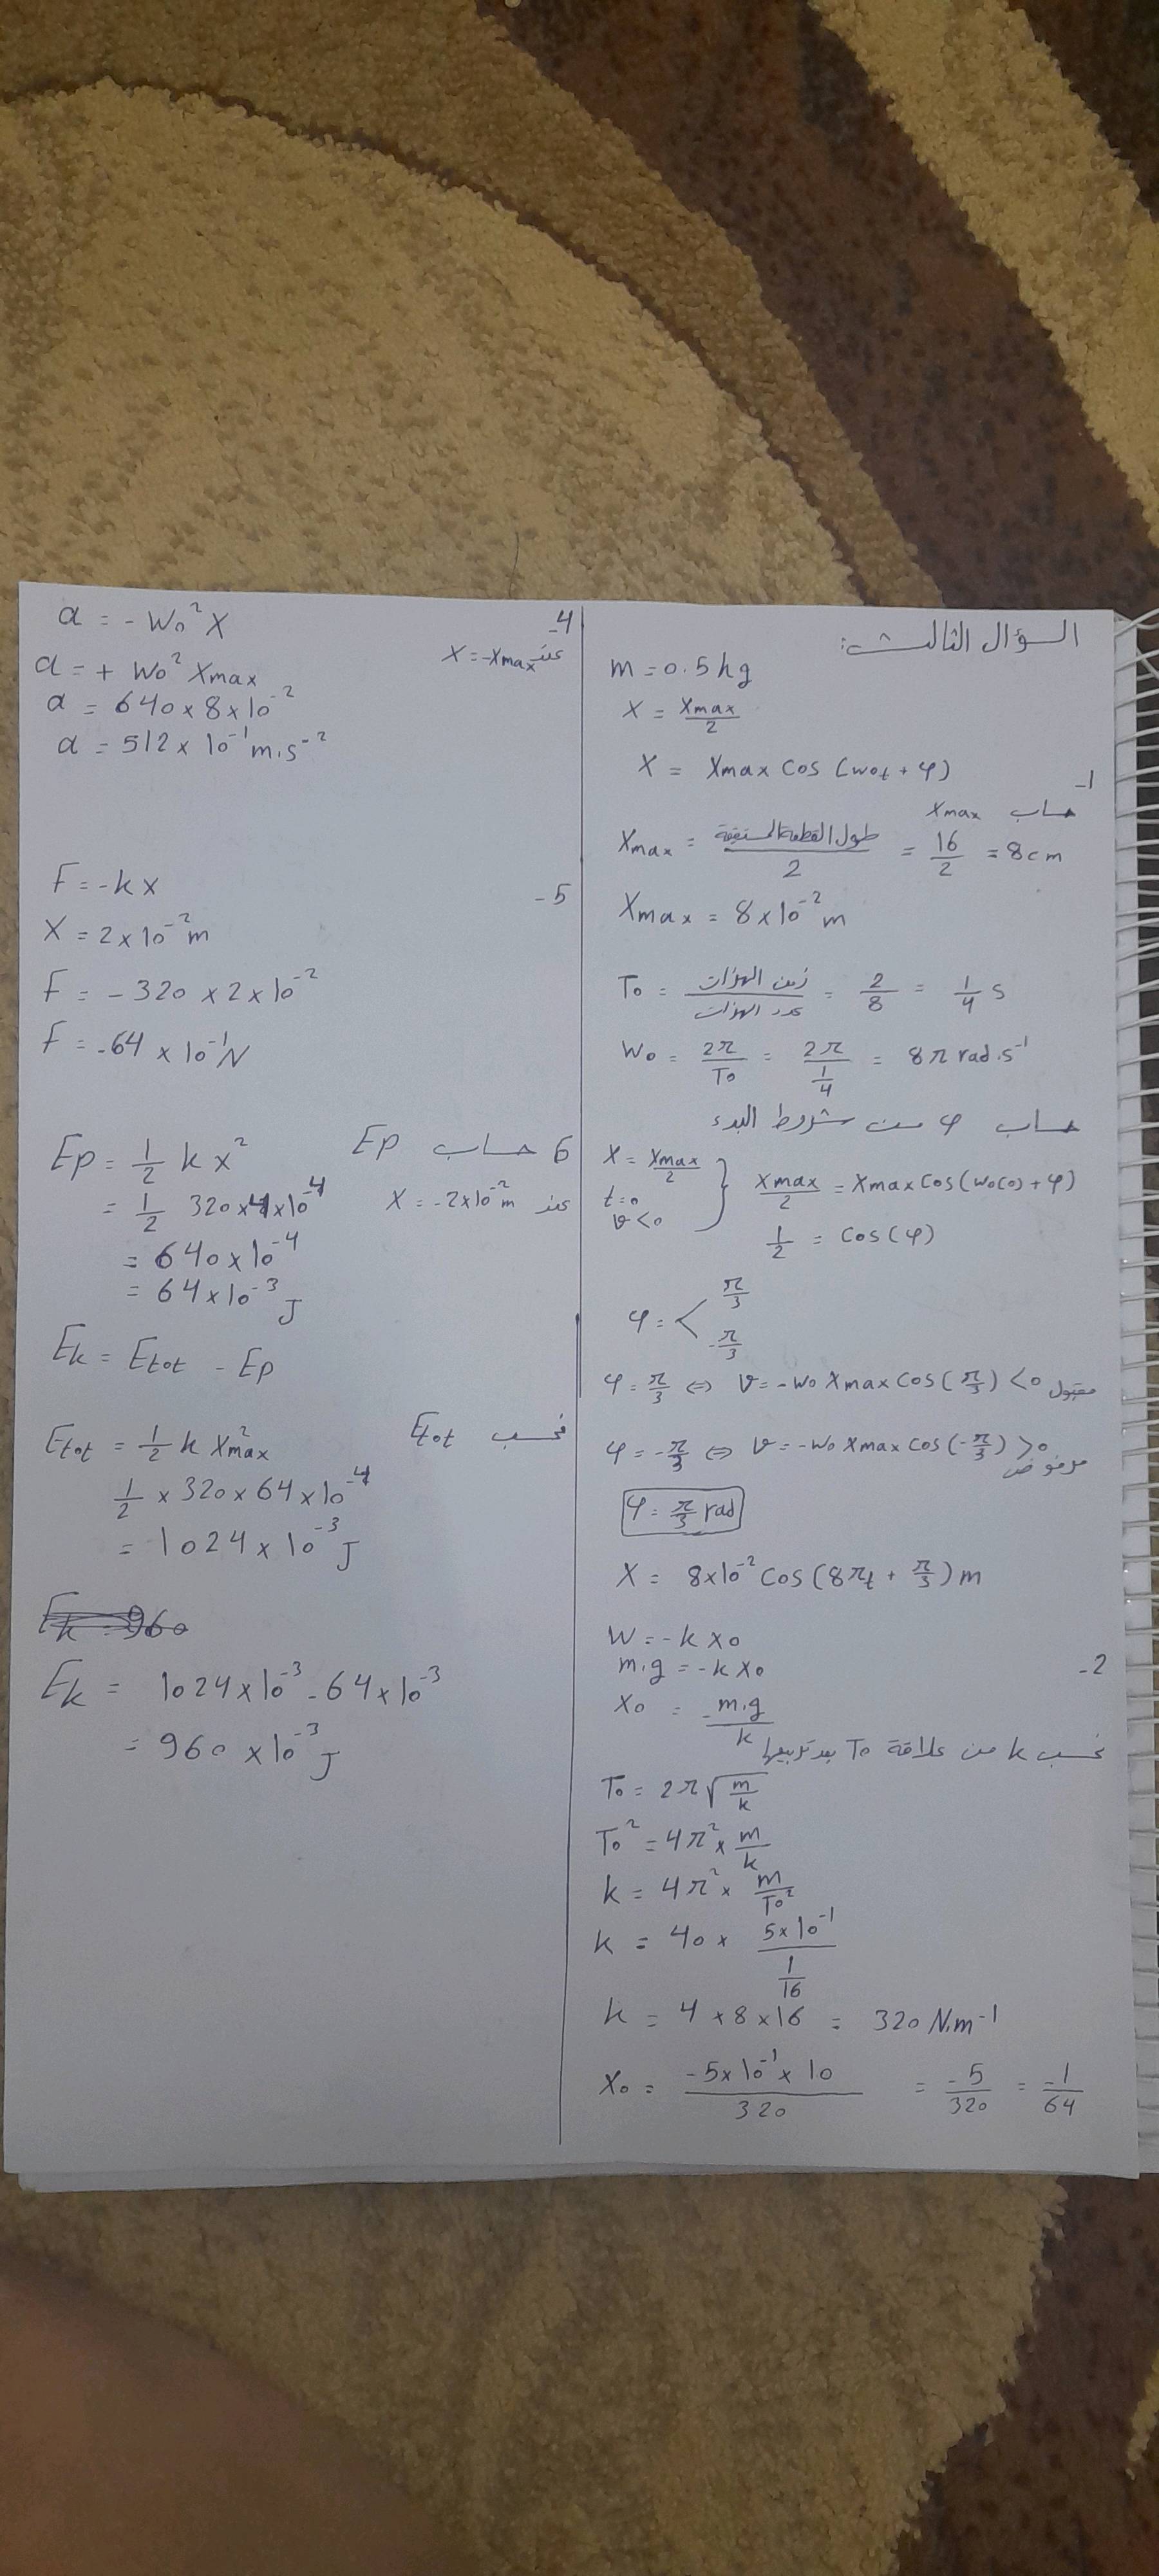 السؤال الثالث:
m = 0.5 kg
X = Xmax/2
X = Xmax cos (ω0t + φ)
-1
حساب Xmax
Xmax = طول القطعة المستقيمة/2 = 16/2 = 8cm
Xmax = 8×10⁻² m
T0 = زمن الهزات/عدد الهزات = 2/8 = 1/4 s
ω0 = 2π/T0 = 2π/(1/4) = 8π rad.s⁻¹
حساب φ من شروط البدء
X = Xmax/2
t=0
v<0
} Xmax/2 = Xmax cos(ω0(0) + φ)
1/2 = cos(φ)
φ = < π/3
-π/3
φ = π/3 ⇔ v = -ω0 Xmax cos(π/3) <0 مقبول
φ = -π/3 ⇔ v = -ω0 Xmax cos(-π/3) >0
مرفوض
φ = π/3 rad
X = 8×10⁻² cos(8πt + π/3) m
W = -k x0
-2
m.g = -k x0
x0 = -m.g/k
نحسب k من علاقة T0 بعد تربيعها
T0 = 2π√(m/k)
T0² = 4π² × m/k
k = 4π² × m/T0²
k = 40 × 5×10⁻¹/(1/16)
k = 4 × 8 × 16 = 320 N.m⁻¹
X0 = -5×10⁻¹×10/320 = -5/320 = -1/64
-4
a = -ω0² X
عند X = -Xmax
a = + ω0² Xmax
a = 640 × 8 × 10⁻²
a = 512 × 10⁻¹ m.s⁻²
-5
F = -k x
X = 2×10⁻² m
F = -320 × 2 × 10⁻²
F = -64 × 10⁻¹ N
6 حساب Ep
Ep = 1/2 k x²
عند X = -2×10⁻² m
= 1/2 320×4×10⁻⁴
= 640×10⁻⁴
= 64×10⁻³ J
Ek = Etot - Ep
نحسب Etot
Etot = 1/2 k X²max
1/2 × 320 × 64 × 10⁻⁴
= 1024 × 10⁻³ J
Ek = 960
Ek = 1024×10⁻³ - 64×10⁻³
= 960 × 10⁻³ J